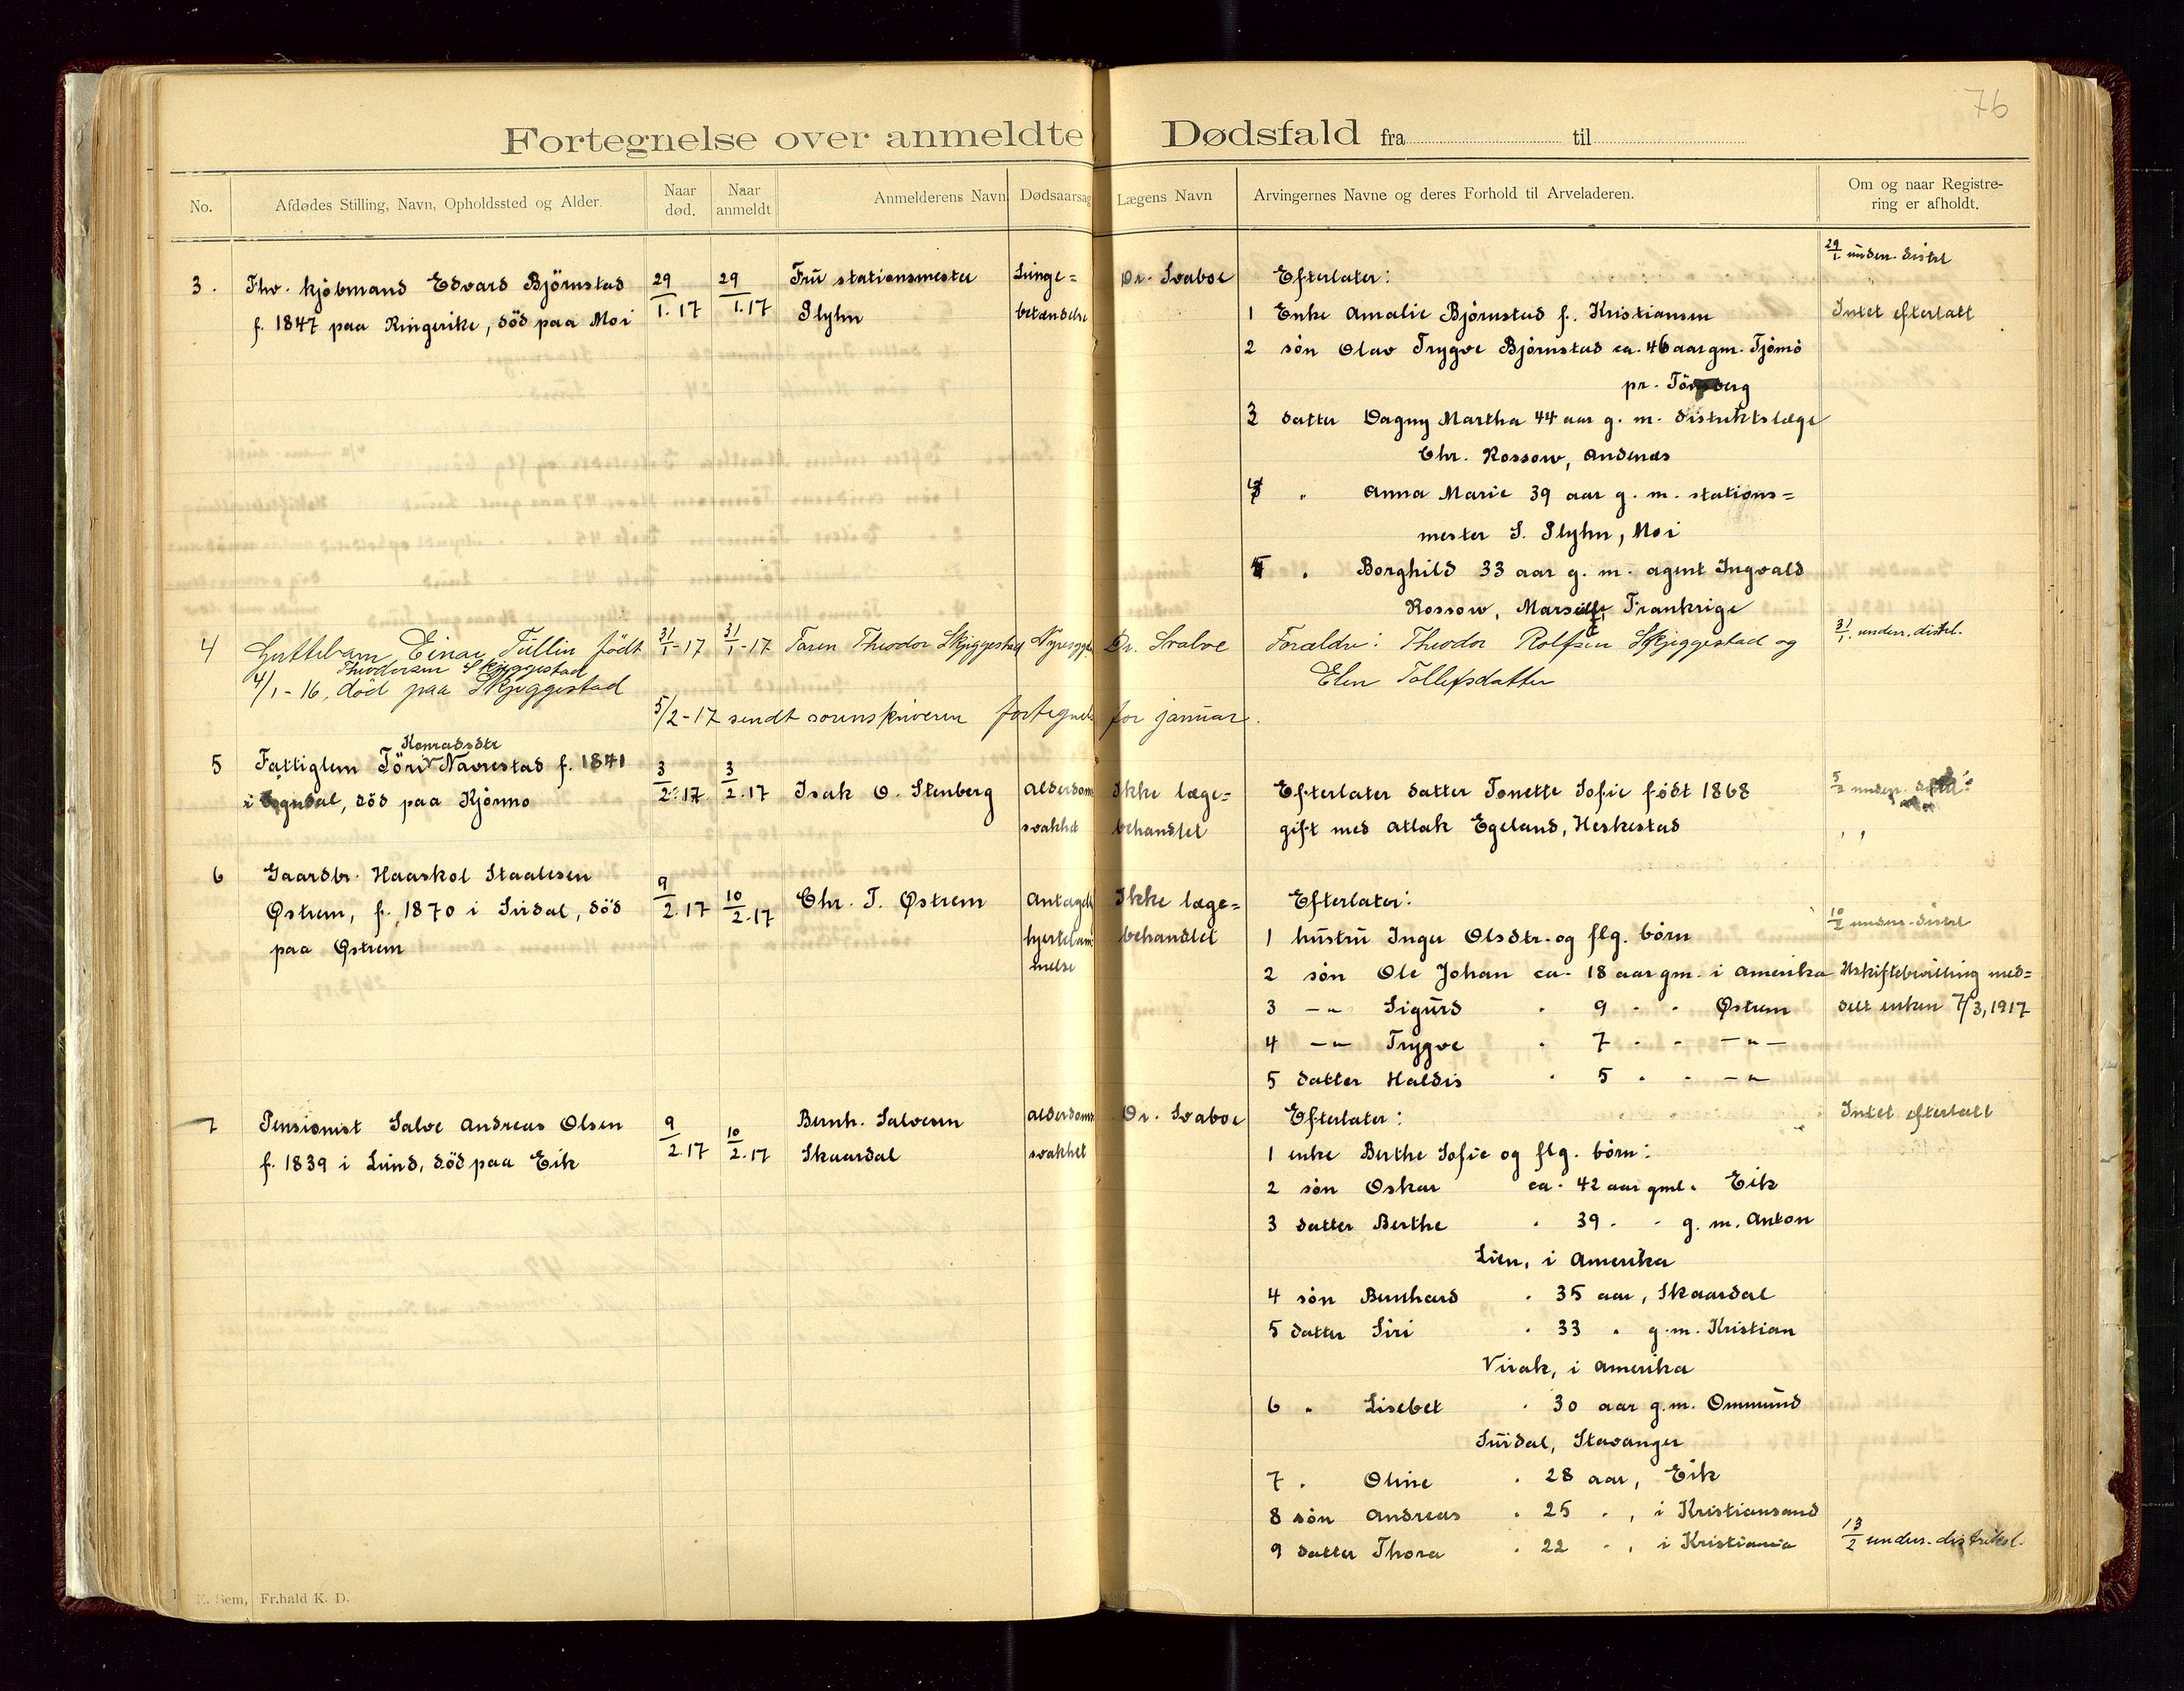 76
Fortegnelse over anmeldte Dødsfald fra til
No. Afdødes Stilling, Navn, Opholdssted og Alder. Naar død. Naar anmeldt Anmelderens Navn Dødsaarsag Lægens Navn Arvingernes Navne og deres Forhold til Arveladeren. Om og naar Registrering er afholdt.
3. Fhv. kjøbmand Edvard Bjørnstad
f. 1847 paa Ringerike, død paa Moi
29/1.17 29/1.17
Fru stationsmester
Plyhn
Lunge=
betændelse
Dr. Svaboe
Efterlater:
1 Enke Amalie Bjørnstad f. Kristiansen
2 søn Olav Trygve Bjørnstad ca. 46 aar gm. Tjømø
pr. Tønsberg
3 datter Dagny Martha 44 aar g. m. distriktslæge
Chr. Rossow, Andenæs
" Anna Marie 39 aar g. m. stations=
mester S. Plyhn, Moi
" Borghild 33 aar g. m. agent Ingvald
Rossow, Marseille, Frankrige
29/1 underr. distrl
Intet efterlatt
4 Guttebarn Einar Tullin født
Theodorsen Skjeggestad
4/1-16, død paa Skjeggestad
31/1-17 31/1-17
Faren Theodor Skjeggestad
Dr. Svaboe
Forældre: Theodor Rolfsen Skjeggestad og
Elen Tollefsdatter
31/1 underr. distrl.
5/2-17 sendt sorenskriveren fortegnels for januar.
5 Fattiglem Töri Konradsdtr Navrestad f. 1841
i Sogndal, död paa Kjörmo
3/2.17 3/2.17
Isak O. Stenberg
Alderdoms
svakhet
Ikke læge=
behandlet
Efterlater datter Tonette Sofie födt 1868
gift med Atlak Egeland, Heskestad
5/2 underr.
6 Gaardbr. Haaskol Staalesen
Østrem, f. 1870 i Sirdal, död
paa Østrem
9/2.17 10/2.17
Chr. T. Østrem
Antagelig
hjertelam=
melse
Ikke læge=
behandlet
Efterlater:
1 hustru Inger Olsdtr. og flg. børn
2 søn Ole Johan ca. 18 aar gm. i Amerika
3 -"- Sigurd " 9 " " Østrem
4 -"- Trygve " 7 " " -"-
5 datter Haldis " 5 " " -"-
10/2 underr. distrl
Uskiftebevilling med=
delt enken 7/3, 1917
7 Pensionist Salve Andreas Olsen
f. 1839 i Lund, död paa Eik
9/2.17 10/2.17
Bernh. Salvesen
Skaardal
Alderdoms
svakhet
Dr. Svaboe
Efterlater:
1 enke Berthe Sofie og flg. børn:
2 søn Oskar ca. 42 aar gml. Eik
3 datter Berthe " 39 " " g. m. Anton
Lien, i Amerika
4 søn Bernhard " 35 aar, Skaardal
5 datter Siri " 33 " g. m. Kristian
Virak, i Amerika
6 " Lisebet " 30 aar g.m. Ommund
Surdal, Stavanger
7 " Oline " 28 aar, Eik
8 søn Andreas " 25 ", i Kristiansand
9 datter Thora " 22 ", i Kristiania
Intet efterlatt
13/2 underr. distriksl.
E. Sem, Fr.hald K. D.